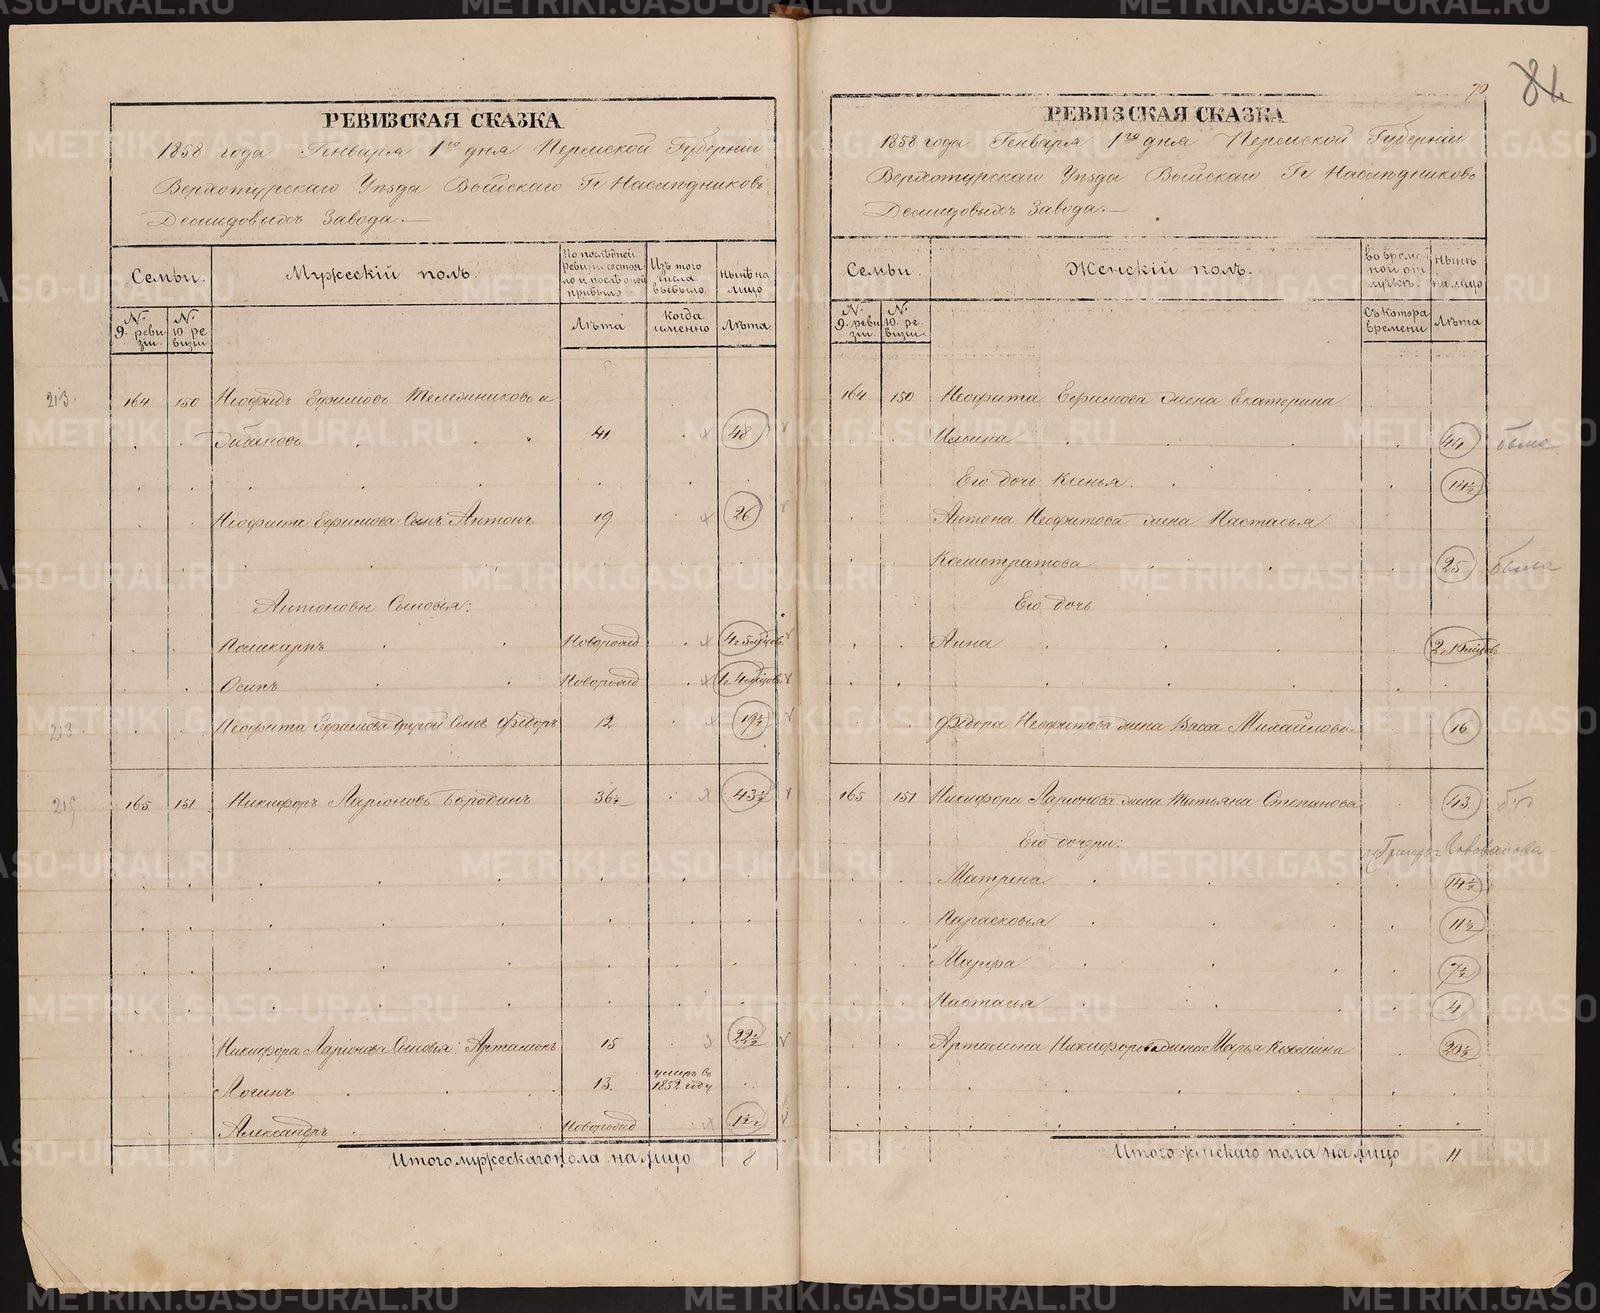 70
84
РЕВИЗСКАЯ СКАЗКА
1858 года Генваря 1го дня Пермской Губерніи
Верхотурскаго Уѣзда Выйскаго Гг Наслѣдниковъ
Демидовыхъ Завода.—
Семьи.
Мужескій полъ.
По послѣдней
ревизіи состоя-
ло и послѣ оной
прибыло
Изъ того
числа
выбыло
нынѣ на
лицо
N.
9. реви-
зіи.
N.
10 ре-
визіи
Лѣта
Когда
именно
Лѣта
213.
164 150 Неофидъ Ефимовъ и
41 48
Неофита Ефимова Сынъ Антонъ 19 26
Антоновы Сыновья:
Поликарпъ Новорожд 4 5 мѣсцовъ
Осипъ Новорожд 1 4 мѣсцовъ
213 Неофита Ефимова другой Сынъ Ѳедоръ 12 19½
215 165 151 Никифоръ Ларіоновъ Бородинъ 36½ 43½
Никифора Ларіонова Сыновья: Артамонъ 15 22½
Логинъ 13. умеръ въ 1852 году
Александръ Новорожд 1½
Итого мужескаго пола на лицо 8
РЕВИЗСКАЯ СКАЗКА
1858 года Генваря 1го дня Пермской Губерніи
Верхотурскаго Уѣзда Выйскаго Гг Наслѣдниковъ
Демидовыхъ Завода.—
Семьи.
Женскій полъ.
во времен-
ной от-
лучкѣ.
нынѣ
на лицо
N.
9. реви-
зіи.
N.
10 ре-
визіи.
Съ котора
времени
Лѣта
164 150 Неофита Ефимова жена Екатерина
Ильина 44
Его дочь Ксенья. 14½
Антона Неофитова жена Настасья
Калистратова 25 была
Его дочь
Анна 2 10 мѣсцовъ
Ѳедора Неофитова жена Васса Михайлова 16
165 151 Никифора Ларіонова жена Татьяна Степанова 43.
Его дочери:
Матрена 14½
Парасковья 11½
Марфа 7½
Настасья 4
Артамона Никифорова жена Марья 20½
Итого женскаго пола на лицо 11
METRIKI.GASO-URAL.RU